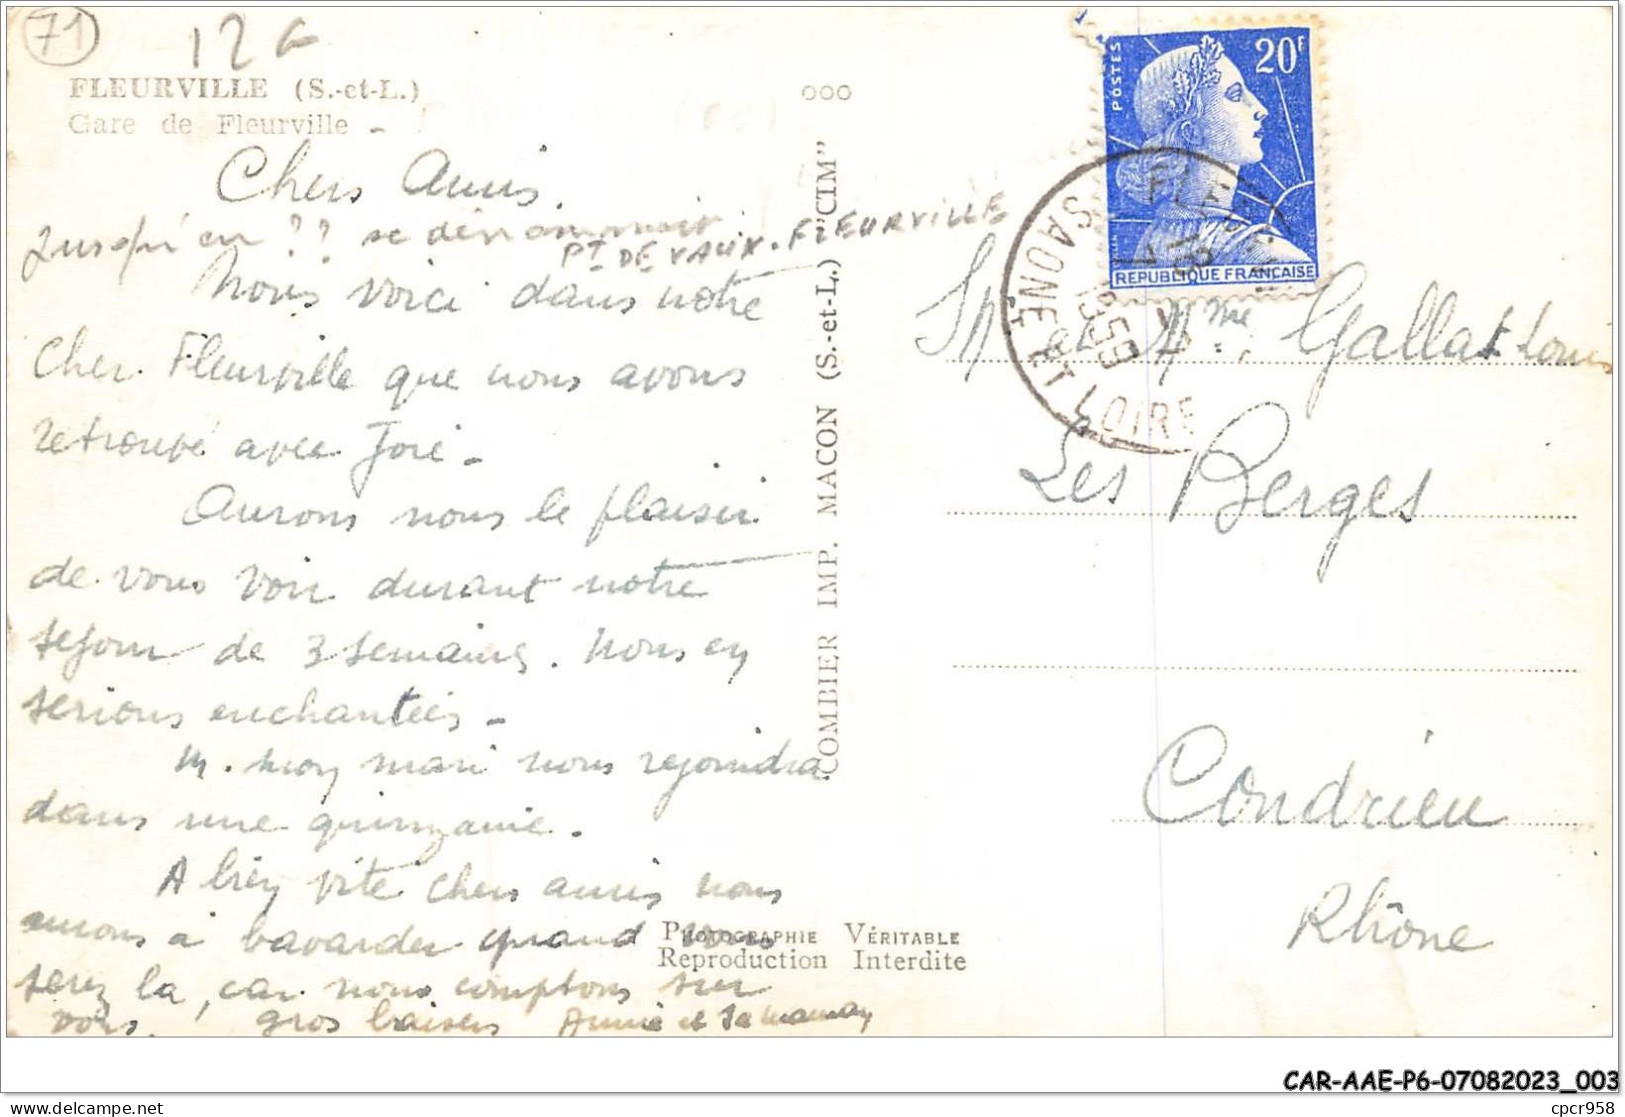 71
12 F
FLEURVILLE (S.-et-L.)
Gare de Fleurville -
000
Chers Amis.
Jusqu'en ?? se dénommait
PT DE VAUX. FLEURVILLE
Nous voici dans notre
Cher Fleurville que nous avons
retrouvé avec Joie -
Aurons nous le plaisir
de vous voir durant notre
sejour de 3 semaines. Nous en
serions enchantées -
M. Mon mari nous rejoindra
dans une quinzaine.
A bien vite chers amis nous
aurons à bavarder quand vous
serez la, car nous comptons sur
vous. gros baisers Annie et sa maman
COMBIER IMP. MACON (S.-et-L.) "CIM"
PHOTOGRAPHIE VÉRITABLE
Reproduction Interdite
POSTES
20F
REPUBLIQUE FRANÇAISE
FLEURVILLE
1959
SAONE ET LOIRE
et Mme Gallat Louis
Les Berges
Condrieu
Rhône
CAR-AAE-P6-07082023_003
cpcr958